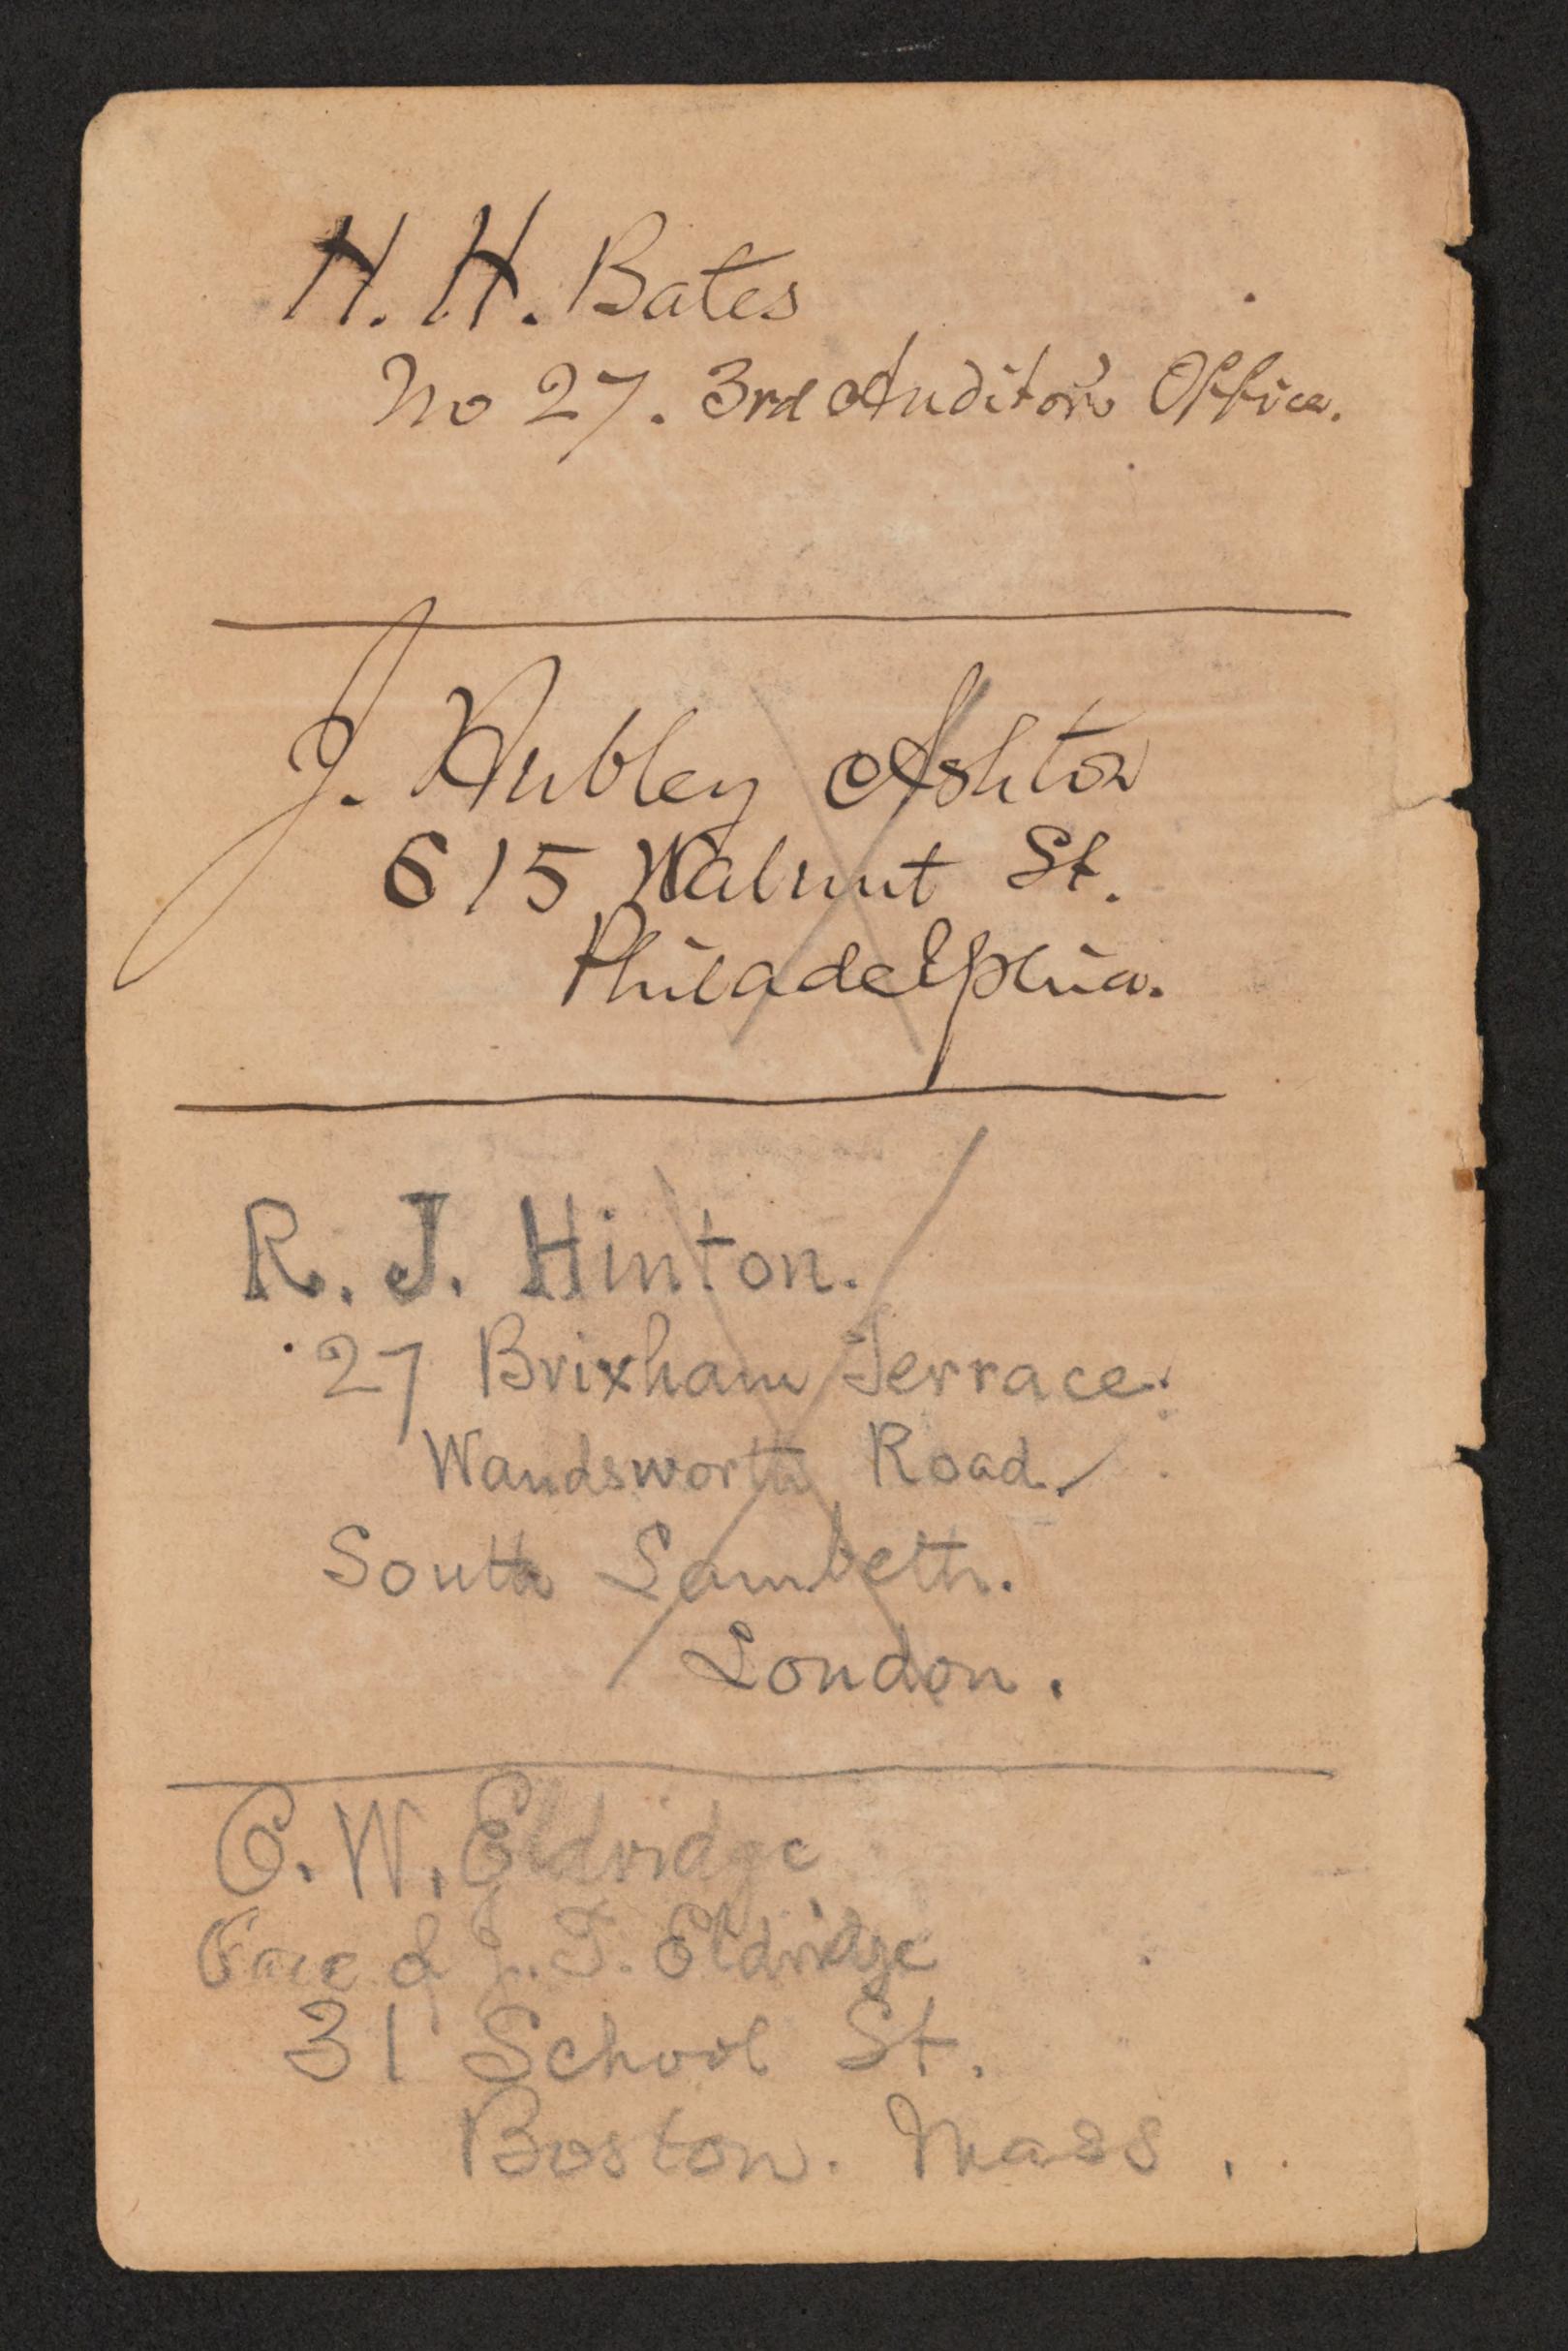 H. H. Bates
No 27. 3rd Auditor's Office.
J. Hubley Ashton
615 Walnut St.
Philadelphia.
R. J. Hinton.
27 Brixham Terrace.
Wandsworth Road.
South Lambeth.
London.
C. W. Eldridge
Care of J. T. Eldridge
31 School St.
Boston. Mass.